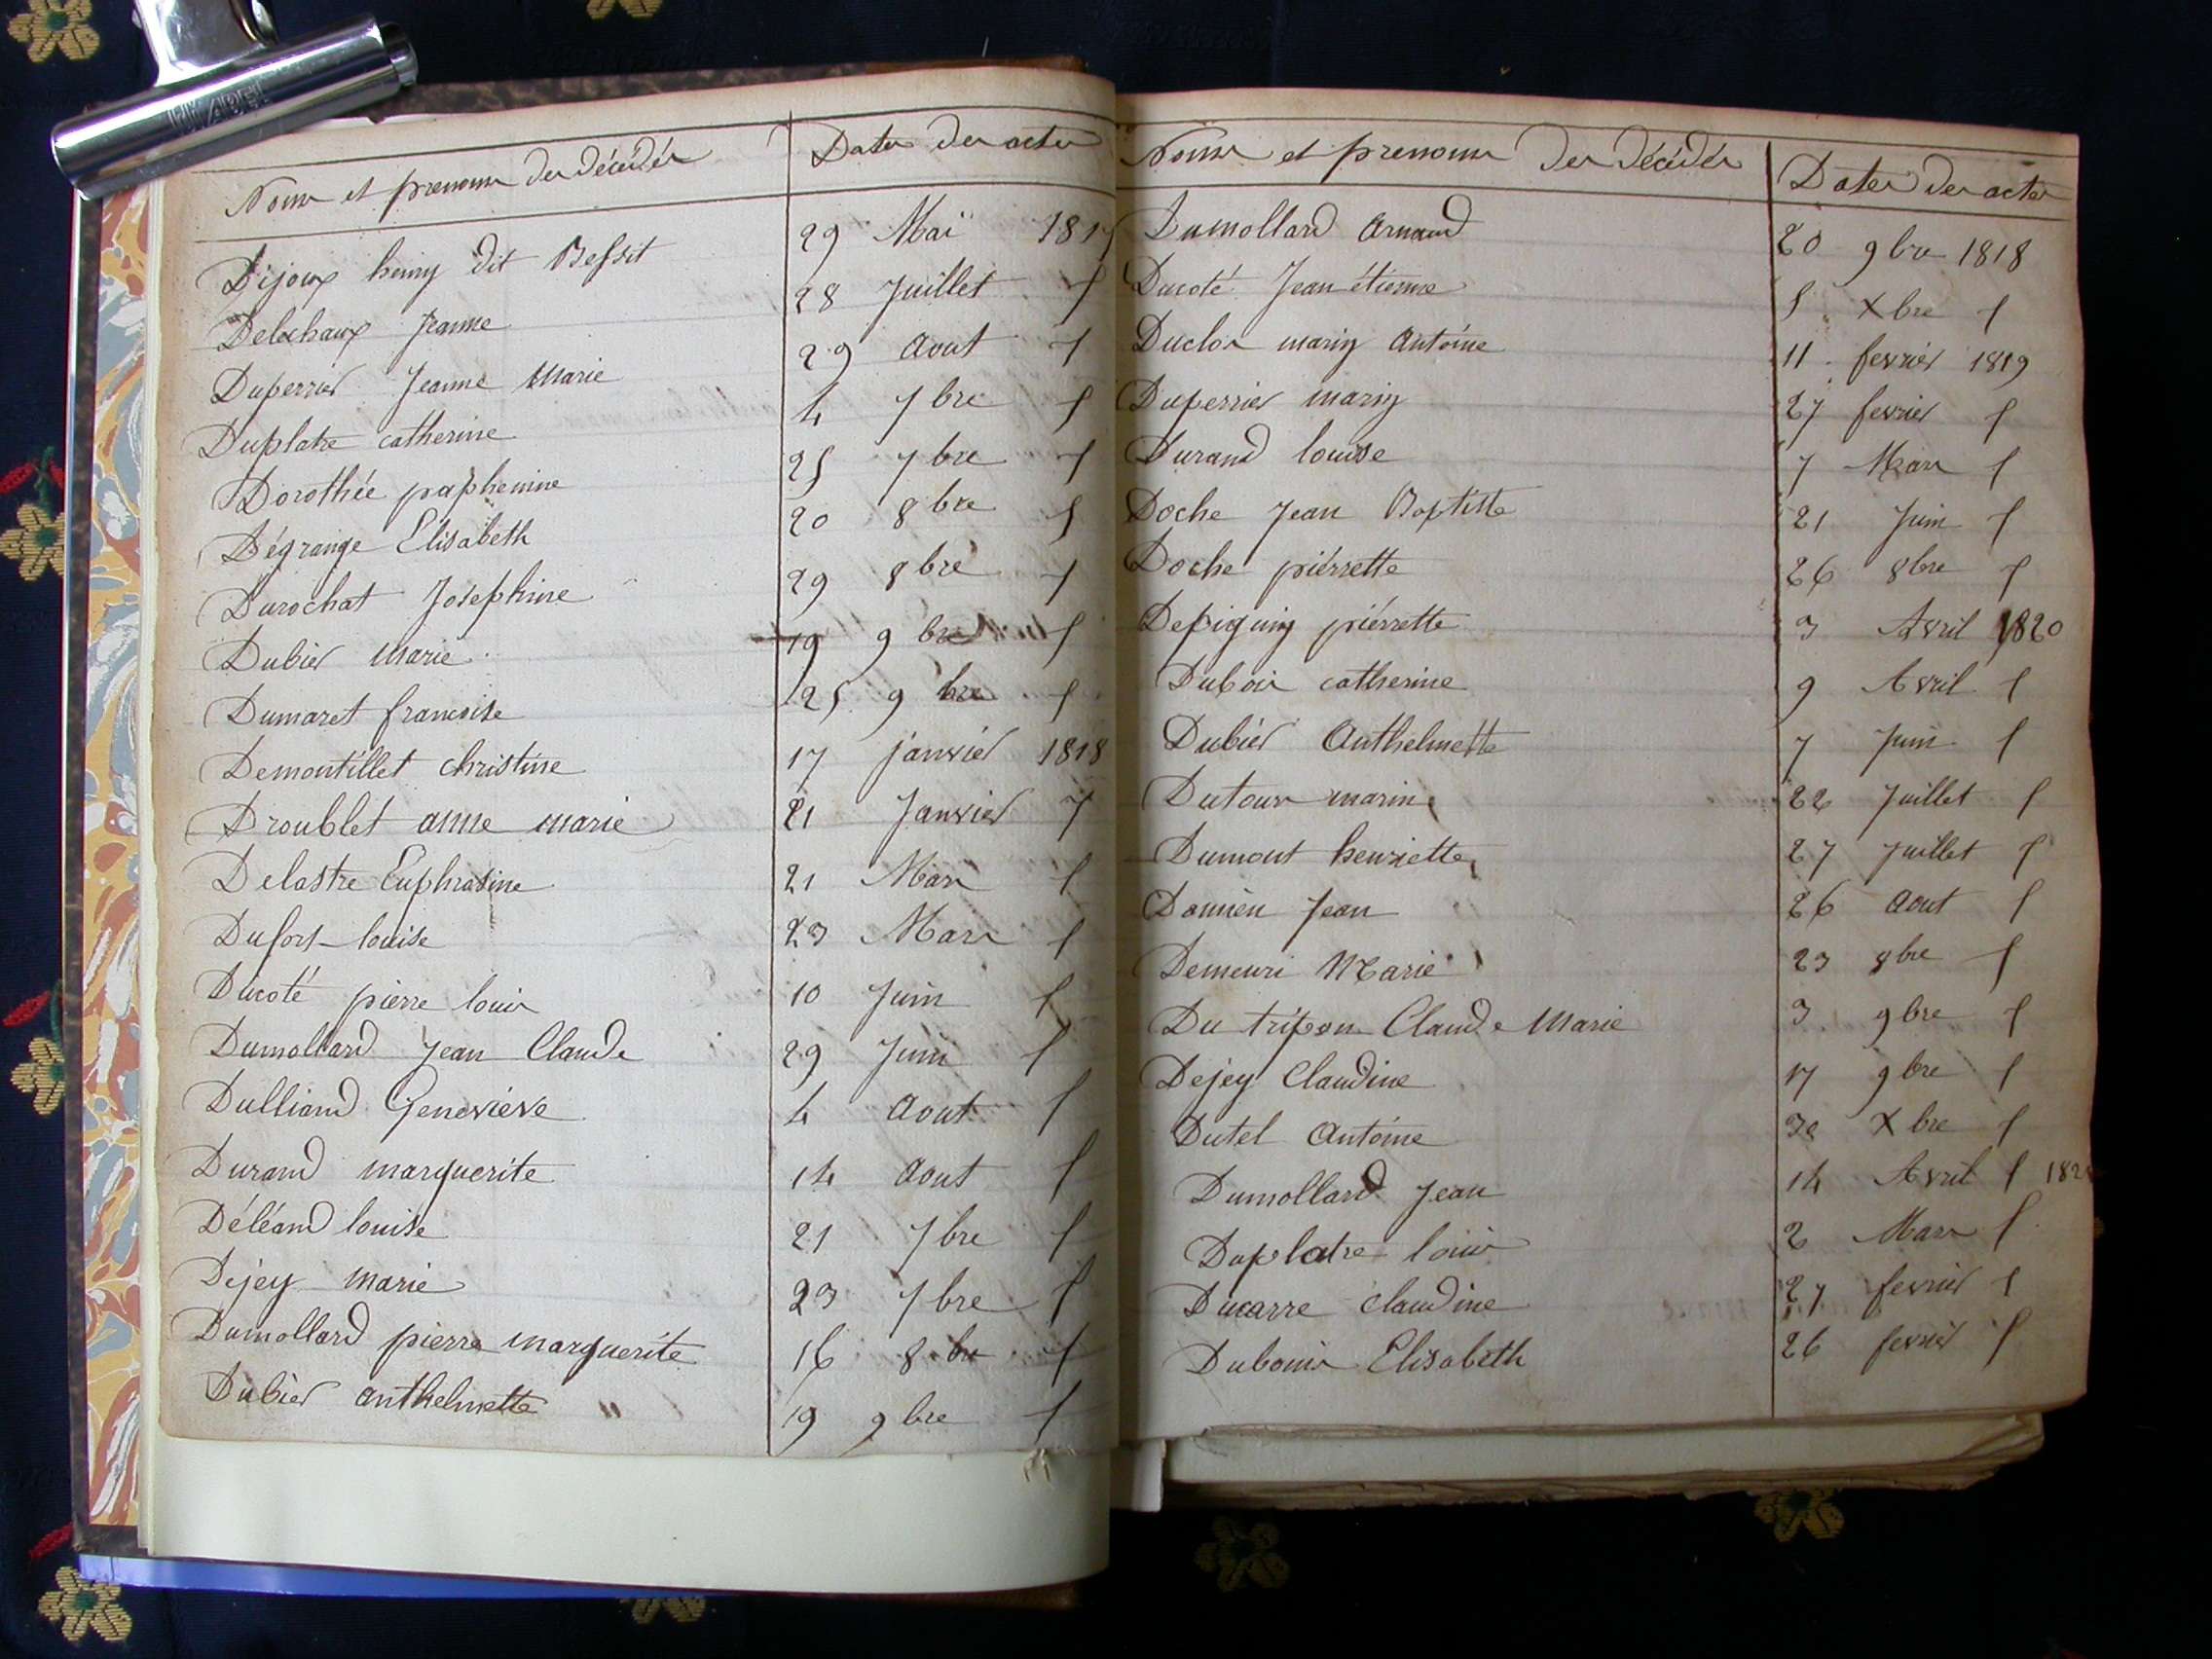 Noms et prenoms des décédés Dates des actes
Dijoux heny dit Bessit 29 Mai 1817
Delochaux Jeanne 28 Juillet f
Duperrier Jeanne Marie 29 Aout f
Duplatre catherine 4 7bre f
Dorothée paphenine 25 7bre f
Dégrange Elisabeth 20 8bre f
Durochat Josephine 29 8bre f
Dubier Marie 19 9bre f
Dumaret francoise 25 9bre f
Demontillet christine 17 janvier 1818
Droublet anne marie 21 Janvier f
Delastre Euphrasine 21 Mars f
Dufort louise 23 Mars f
Ducoté pierre louis 10 Juin f
Dumollard Jean Claude 29 Juin f
Dulliand Geneviéve 4 Aout f
Durand marguerite 14 Aout f
Déléand louise 21 7bre f
Dejey marie 23 7bre f
Dumollard pierre marguerite 16 8bre f
Dubier anthelmette 19 9bre f
Noms et prenoms des décédés Dates des actes
Dumollard Arnaud 20 9bre 1818
Ducoté Jean étienne 5 Xbre f
Duclos mariy Antoine 11 fevrier 1819
Duperrier mariy 27 fevrier f
Durand louise 7 Mars f
Doche Jean Baptiste 21 Juin f
Doche piérrette 26 8bre f
Depiguiy piérrette 3 Avril 1820
Dubois catherine 9 Avril f
Dubiér Anthelmette 7 Juin f
Dutour marin 22 Juillet f
Dumont henriette 27 Juillet f
Damien Jean 26 Aout f
Demeuri Marie 23 8bre f
Du tripon Claude Marie 3 9bre f
Dejey Claudine 17 9bre f
Dutel Antoine 30 Xbre f
Dumollard Jean 14 Avril f 182
Duplatre louis 2 Mars f
Ducarre claudine 27 fevrier f
Dubouis Elisabeth 26 fevrier f